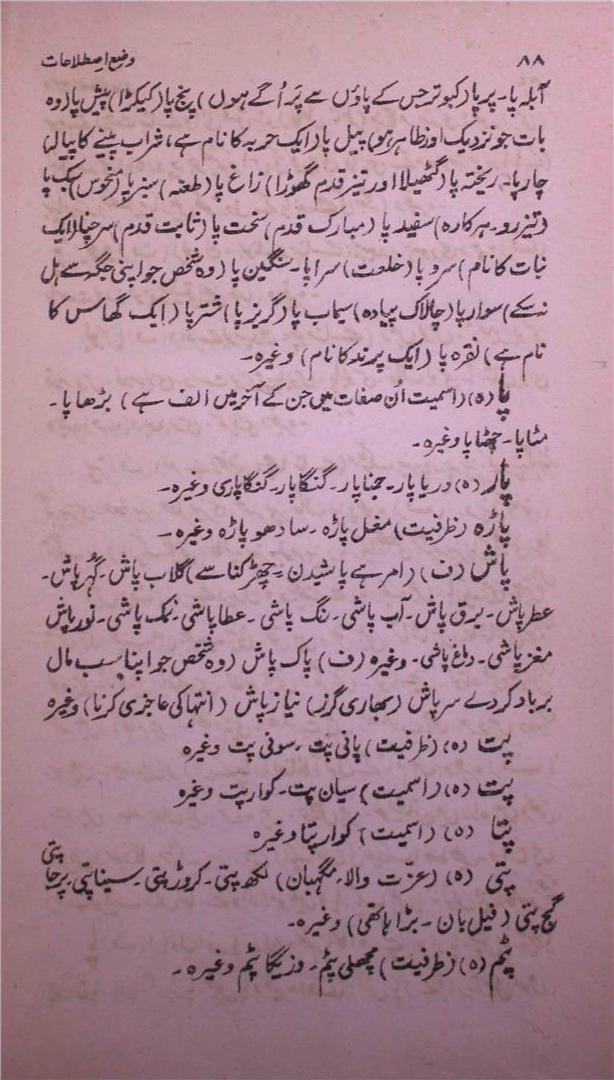 ۸۸ وضع اصطلاحات
آبلہ پا۔ پرپا (کبوتر جس کے پاؤں سے پَر اُگے ہوں) پنج پا (کیکڑا) پیش پا (وہ
بات جو نزدیک اور ظاہر ہو) پیل پا (ایک حربہ کا نام ہے، شراب پینے کا پیالہ)
چارپا۔ ریختہ پا (گٹھیلا اور تیز قدم گھوڑا) زاغ پا (طعنہ) سبز پا (منحوس) سبک پا
(تیز رو۔ ہرکارہ) سفید پا (مبارک قدم) سخت پا (ثابت قدم) سرچپا (ایک
نبات کا نام) سروپا (خلعت) سراپا۔ سنگین پا (وہ شخص جو اپنی جگہ سے ہل
نہ سکے) سوار پا (چالاک پیادہ) سیماب پا (گریز پا) شتر پا (ایک گھاس کا
نام ہے) نقرہ پا (ایک پرند کا نام) وغیرہ۔
پا (ہ) (اسمیت اُن صفات میں جن کے آخر میں الف ہے) بڑھاپا۔
مٹاپا۔ چھٹاپا وغیرہ۔
پار (ہ) دریا پار۔ جمنا پار۔ گنگا پار۔ گنگا پاری وغیرہ۔
پاڑہ (ظرفیت) مغل پاڑہ۔ سادھو پاڑہ وغیرہ۔
پاش (ف) (امر ہے پاشیدن = چھڑکنا سے) گلاب پاش۔ گہر پاش۔
عطر پاش۔ برق پاش۔ آب پاشی۔ رنگ پاشی۔ عطا پاشی۔ نمک پاشی۔ نور پاش
مغز پاشی۔ دماغ پاشی۔ وغیرہ (ف) پاک پاش (وہ شخص جو اپنا سب مال
برباد کر دے سر پاش (بھاری گرز) نیاز پاش (انتہا کی عاجزی کرنا) وغیرہ
پت (ہ) (ظرفیت) پانی پت، سونی پت وغیرہ
پت (ہ) (اسمیت) سیان پت۔ کوار پت وغیرہ
پتا (ہ) (اسمیت) کوار پتا وغیرہ
پتی (ہ) (عزت والا، نگہبان) لکھ پتی۔ کروڑ پتی۔ سیناپتی۔ پرجا پتی
گج پتی (فیل بان۔ بڑا ہاتھی) وغیرہ۔
پٹم (ہ) (ظرفیت) مچھلی پٹم۔ وزیگا پٹم وغیرہ۔